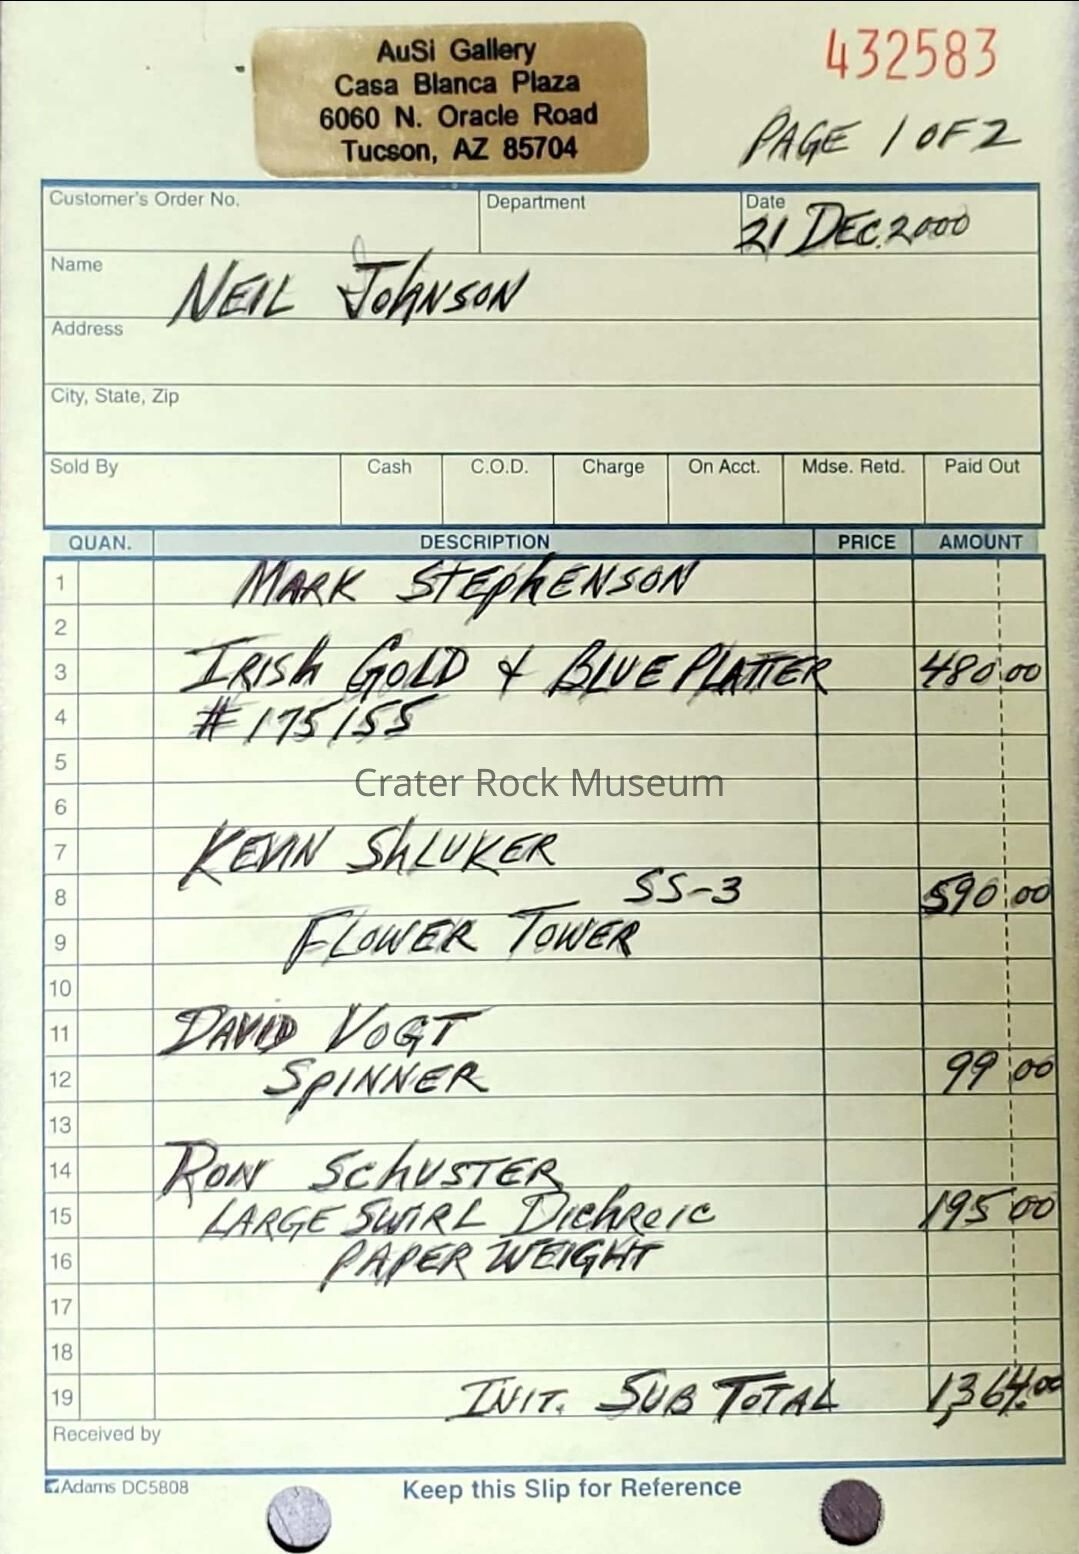 AuSi Gallery
Casa Blanca Plaza
6060 N. Oracle Road
Tucson, AZ 85704
432583
PAGE 1 OF 2
Customer's Order No. Department Date
21 DEC. 2000
Name NEIL JOHNSON
Address
City, State, Zip
Sold By Cash C.O.D. Charge On Acct. Mdse. Retd. Paid Out
QUAN. DESCRIPTION PRICE AMOUNT
1 MARK STEPhENSON
2
3 IRISh GOLD & BLUE PLATTER 480.00
4 #175155
5
Crater Rock Museum
6
7 KEVIN ShLUKER
8 SS-3 590.00
9 FLOWER TOWER
10
11 DAVID VOGT
12 SPINNER 99 00
13
14 RON SchUSTER
15 LARGE SWIRL DIChROIC 195 00
16 PAPER WEIGHT
17
18
19 INIT. SUB TOTAL 1,364.00
Received by
Adams DC5808 Keep this Slip for Reference